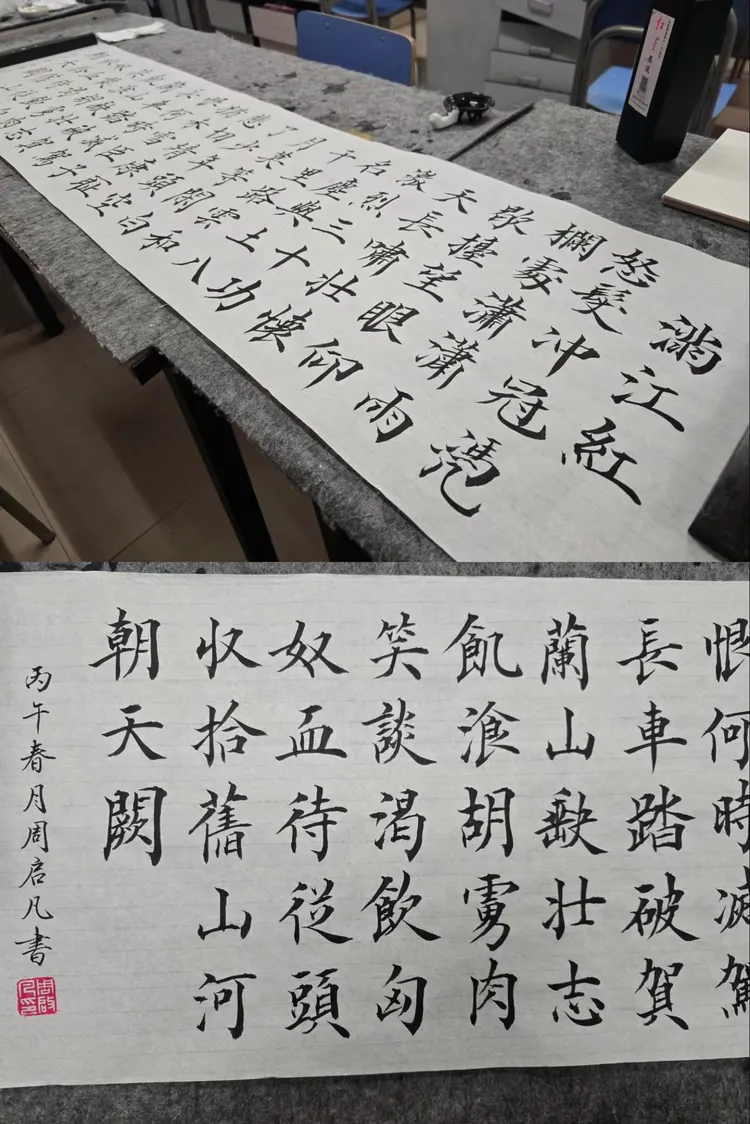 滿江紅
怒髮冲冠凴
欄處瀟瀟雨
歇擡望眼仰
天長嘯壯懷
激烈三十功
名塵與土八
千里路雲和
月莫等閒白
了少年頭空
悲切靖康恥
猶未雪臣子
恨何時滅駕
長車踏破賀
蘭山缺壯志
飢湌胡虜肉
笑談渴飲匈
奴血待從頭
収拾舊山河
朝天闕
丙午春月周启凡書
周啟凡印